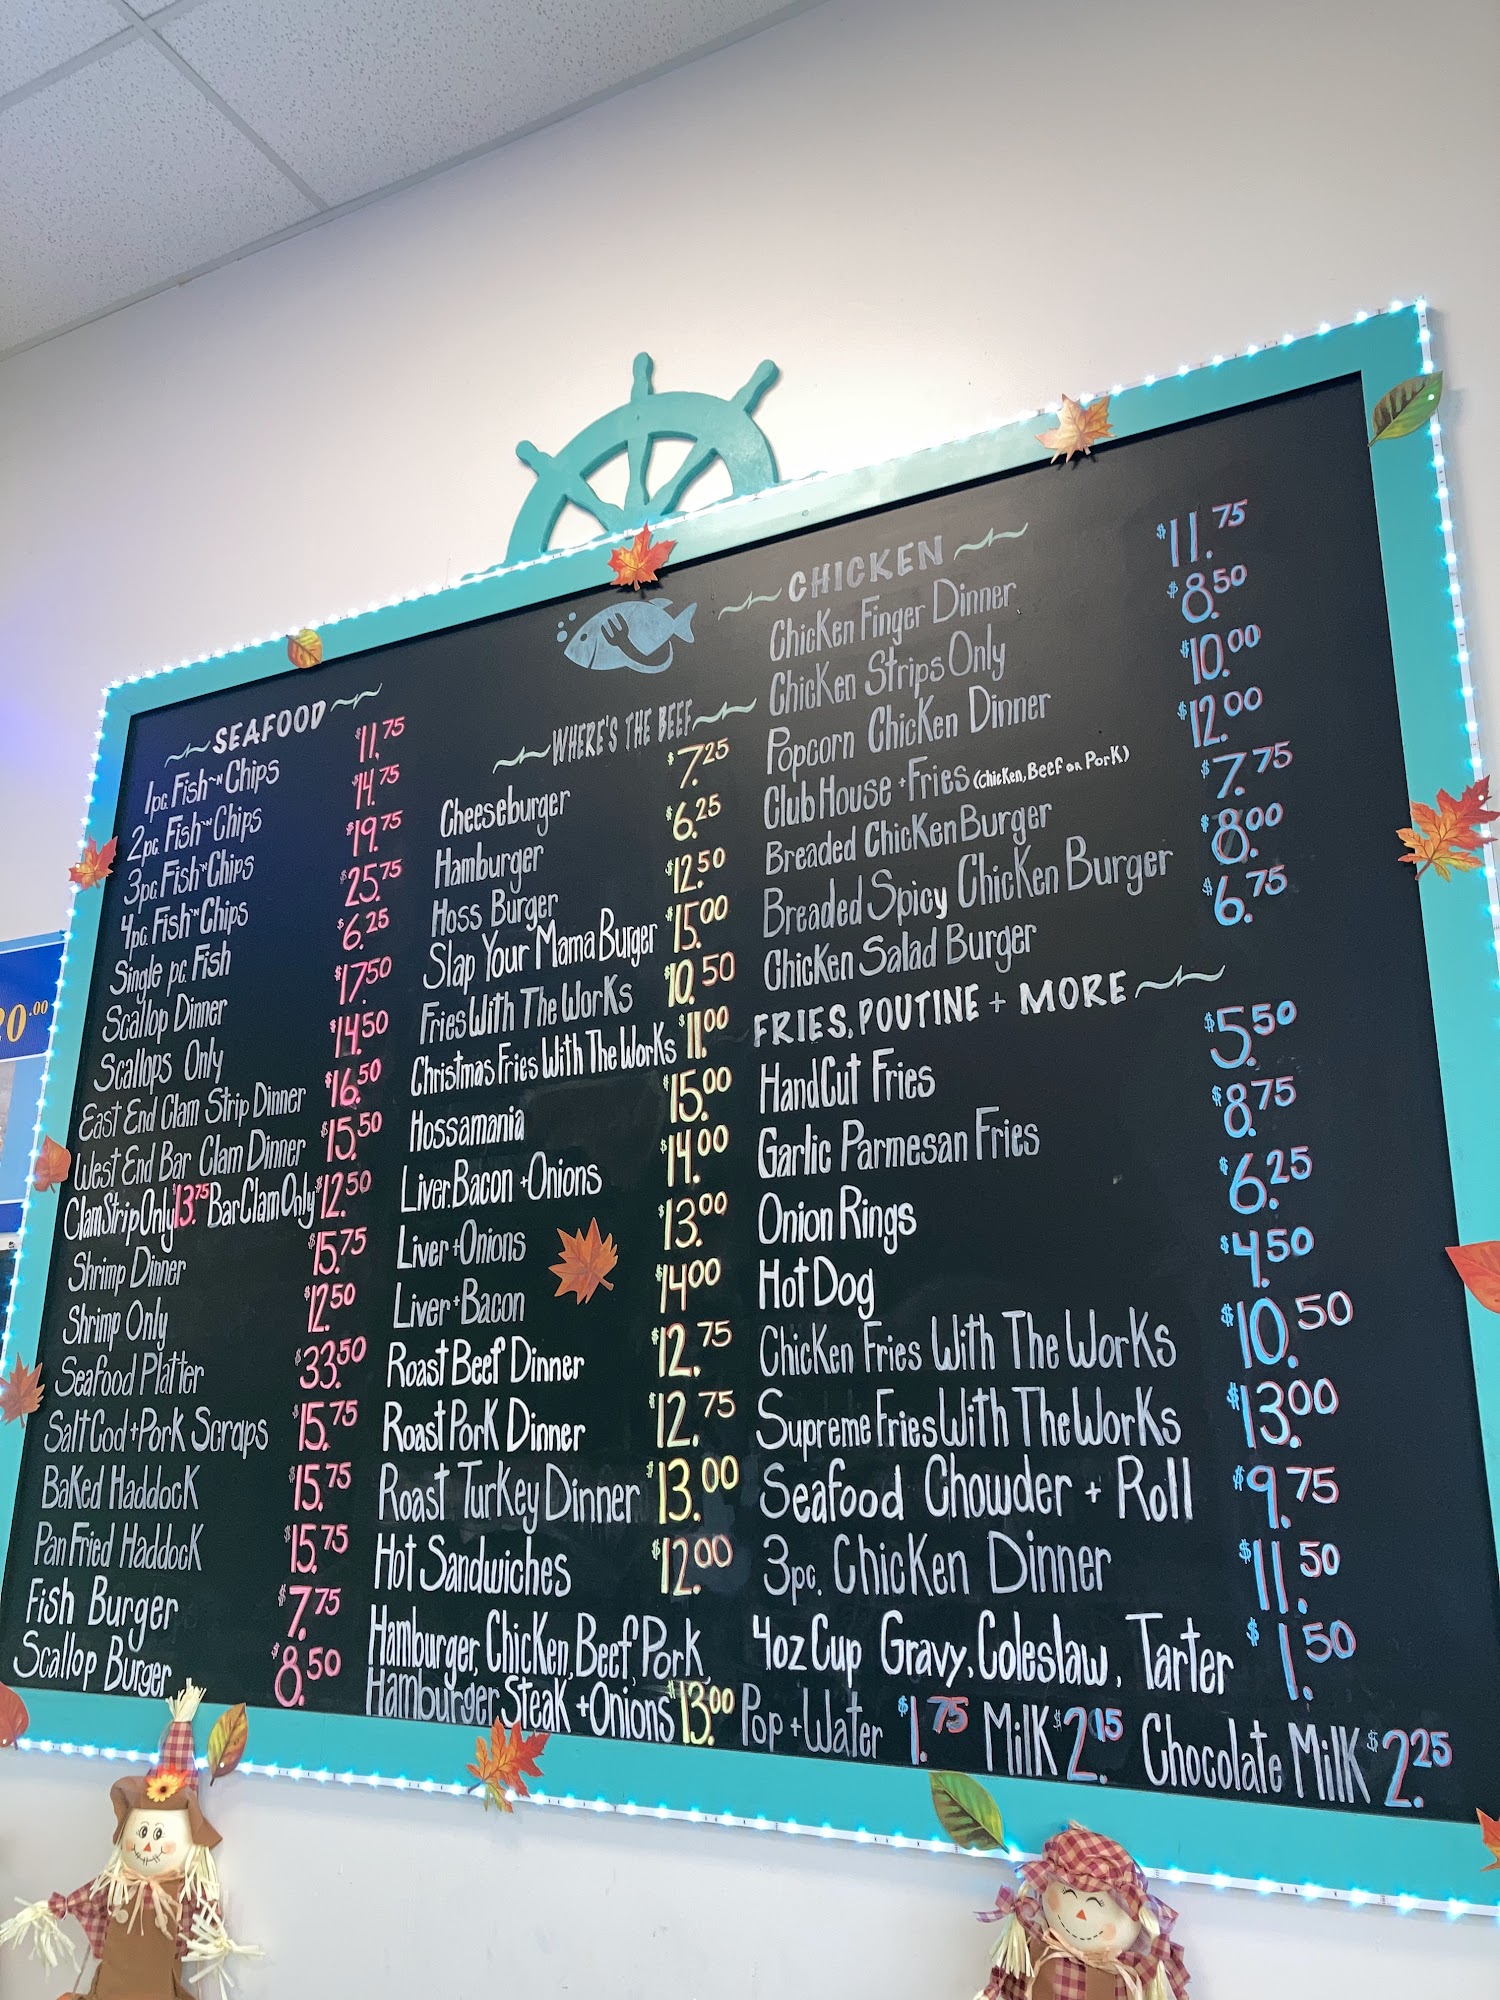 SEAFOOD
1pc. Fish~N Chips $11.75
2pc. Fish~N Chips $14.75
3pc. Fish~N Chips $19.75
4pc. Fish~N Chips $25.75
Single pc. Fish $6.25
Scallop Dinner $17.50
Scallops Only $14.50
East End Clam Strip Dinner $16.50
West End Bar Clam Dinner $15.50
Clam Strip Only $13.75 Bar Clam Only $12.50
Shrimp Dinner $15.75
Shrimp Only $12.50
Seafood Platter $33.50
Salt Cod + Pork Scraps $15.75
Baked Haddock $15.75
Pan Fried Haddock $15.75
Fish Burger $7.75
Scallop Burger $8.50
WHERE'S THE BEEF
Cheeseburger $7.25
Hamburger $6.25
Hoss Burger $12.50
Slap Your Mama Burger $15.00
Fries With The Works $10.50
Christmas Fries With The Works $11.00
Hossamania $15.00
Liver, Bacon + Onions $14.00
Liver + Onions $13.00
Liver + Bacon $14.00
Roast Beef Dinner $12.75
Roast Pork Dinner $12.75
Roast Turkey Dinner $13.00
Hot Sandwiches $12.00
Hamburger, Chicken, Beef, Pork,
Hamburger Steak + Onions $13.00
CHICKEN
Chicken Finger Dinner $11.75
Chicken Strips Only $8.50
Popcorn Chicken Dinner $10.00
Club House + Fries (Chicken, Beef or Pork) $12.00
Breaded Chicken Burger $7.75
Breaded Spicy Chicken Burger $8.00
Chicken Salad Burger $6.75
FRIES, POUTINE + MORE
Hand Cut Fries $5.50
Garlic Parmesan Fries $8.75
Onion Rings $6.25
Hot Dog $4.50
Chicken Fries With The Works $10.50
Supreme Fries With The Works $13.00
Seafood Chowder + Roll $9.75
3pc. Chicken Dinner $11.50
4oz Cup Gravy, Coleslaw, Tarter $1.50
Pop + Water $1.75 Milk $2.15 Chocolate Milk $2.25